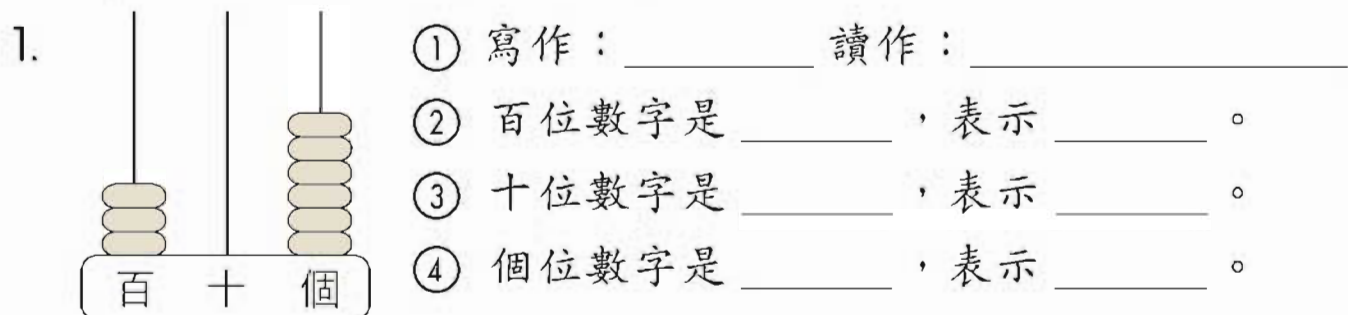 1.
① 寫作：________ 讀作：________________
② 百位數字是 ______ ，表示 ______ 。
③ 十位數字是 ______ ，表示 ______ 。
④ 個位數字是 ______ ，表示 ______ 。
百 十 個